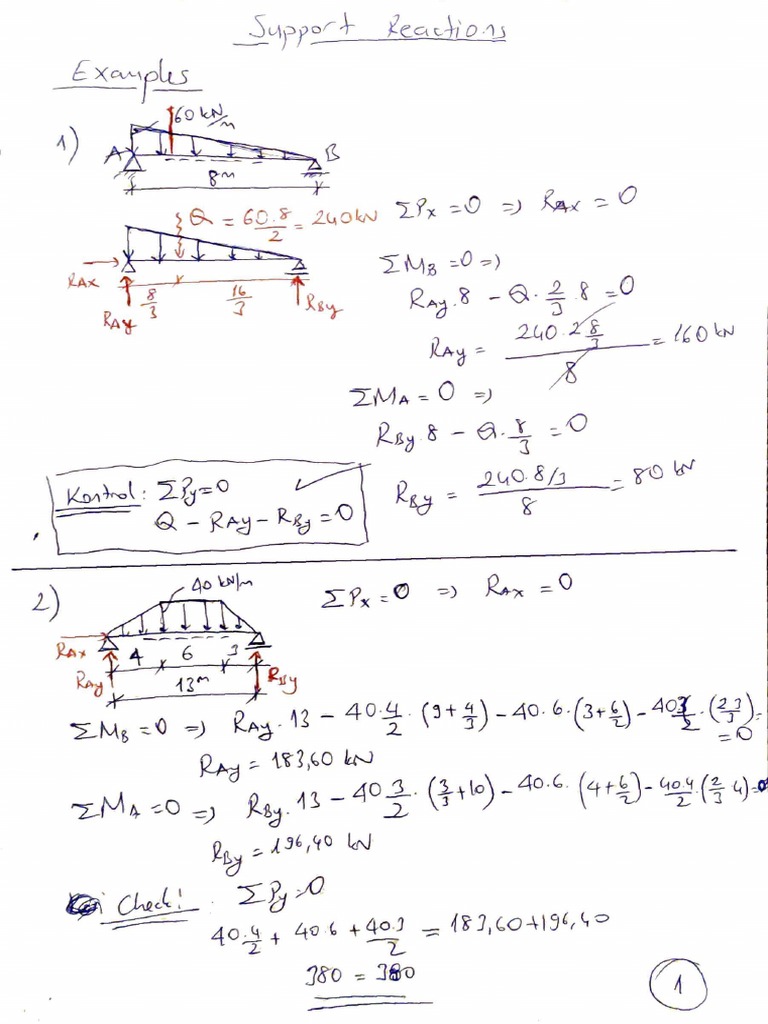 Support Reactions
Examples
1)
60 kN/m
A
B
8m
Q = 60.8/2 = 240kN
RAX
RAy
8/3
16/3
RBy
ΣPx = 0 => RAX = 0
ΣMB = 0 =>
RAy.8 - Q.2/3.8 = 0
RAy = 240.2 8/3 / 8 = 160 kN
ΣMA = 0 =>
RBy.8 - Q.8/3 = 0
RBy = 240.8/3 / 8 = 80 kN
Kontrol: ΣPy=0 ✓
Q - RAy - RBy = 0
2)
40 kN/m
ΣPx = 0 => RAX = 0
RAX
4 6 3
RAy
RBy
13m
ΣMB = 0 => RAy.13 - 40.4/2.(9+4/3) - 40.6.(3+6/2) - 40.3/2.(2.3/3) = 0
RAy = 183,60 kN
ΣMA = 0 => RBy.13 - 40 3/2.(3/3+10) - 40.6.(4+6/2) - 40.4/2.(2/3 4) = 0
RBy = 196,40 kN
Check! ΣPy=0
40.4/2 + 40.6 + 40.3/2 = 183,60+196,40
380 = 380
1